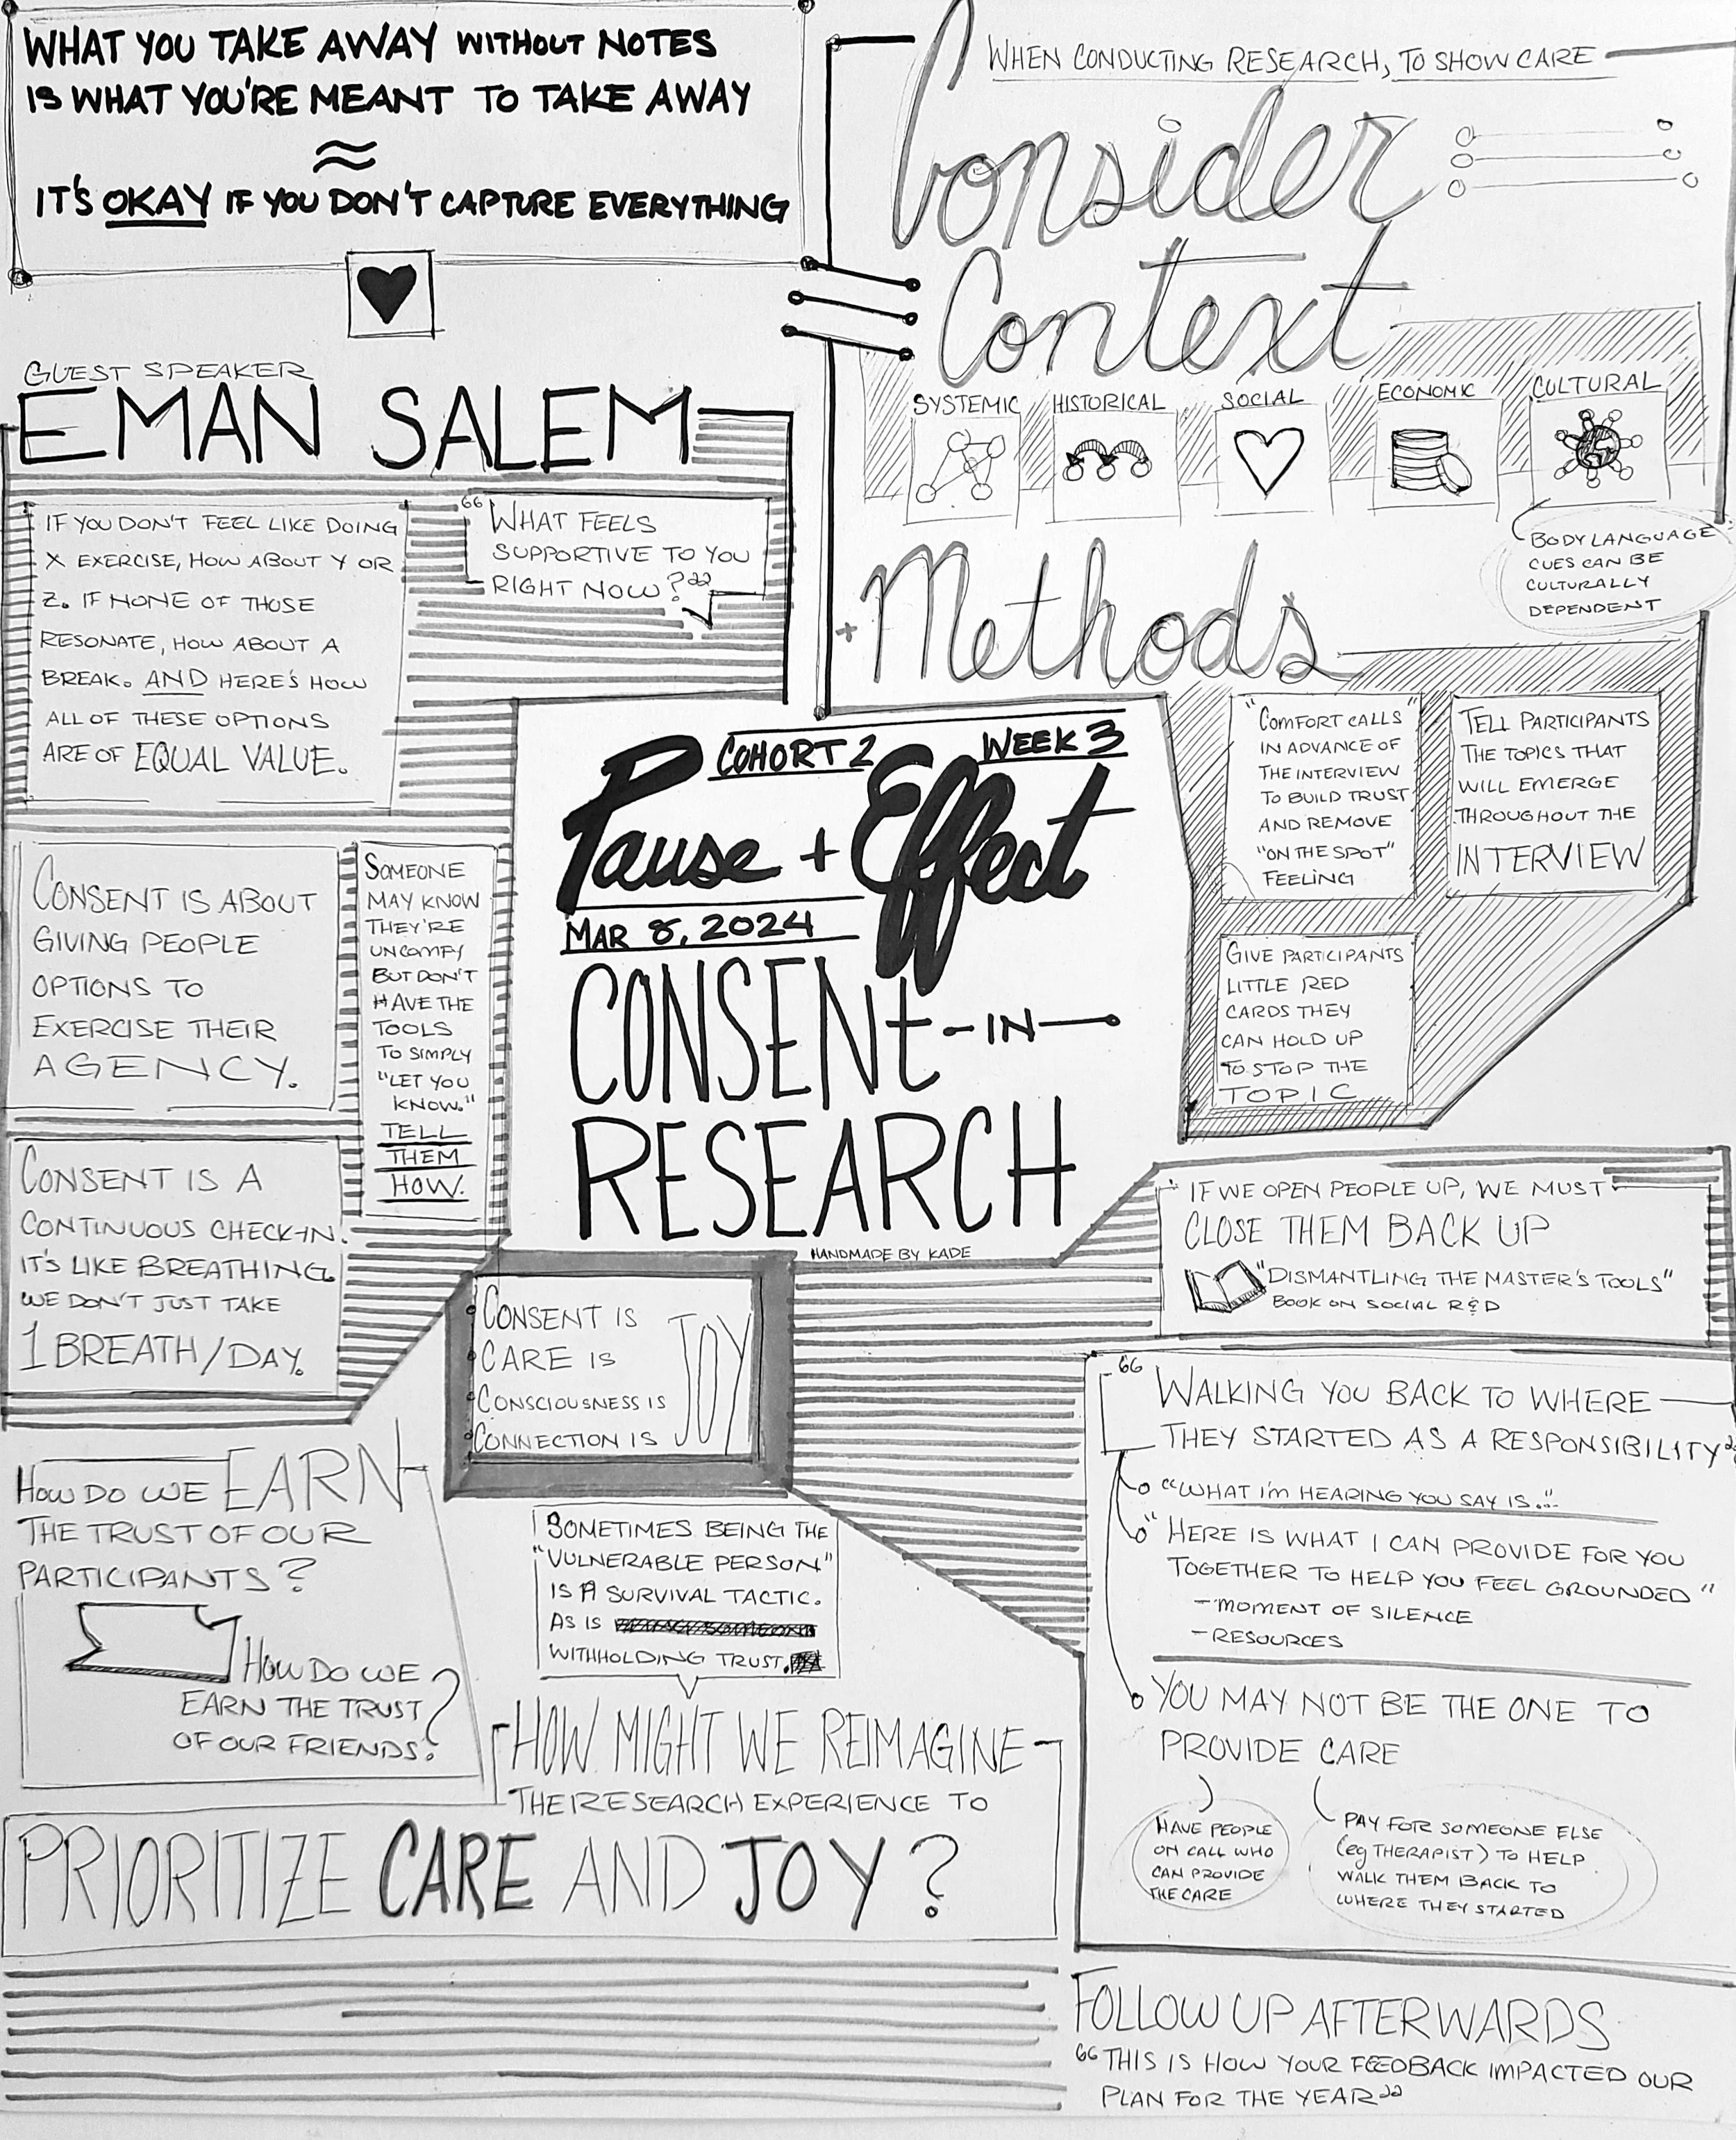 WHAT YOU TAKE AWAY WITHOUT NOTES
IS WHAT YOU'RE MEANT TO TAKE AWAY
≈
IT'S OKAY IF YOU DON'T CAPTURE EVERYTHING
GUEST SPEAKER
EMAN SALEM
IF YOU DON'T FEEL LIKE DOING
X EXERCISE, HOW ABOUT Y OR
Z. IF NONE OF THOSE
RESONATE, HOW ABOUT A
BREAK. AND HERE'S HOW
ALL OF THESE OPTIONS
ARE OF EQUAL VALUE.
"WHAT FEELS
SUPPORTIVE TO YOU
RIGHT NOW?"
CONSENT IS ABOUT
GIVING PEOPLE
OPTIONS TO
EXERCISE THEIR
AGENCY.
SOMEONE
MAY KNOW
THEY'RE
UNCOMFY
BUT DON'T
HAVE THE
TOOLS
TO SIMPLY
"LET YOU
KNOW."
TELL
THEM
HOW.
CONSENT IS A
CONTINUOUS CHECK-IN.
IT'S LIKE BREATHING.
WE DON'T JUST TAKE
1 BREATH/DAY.
COHORT 2
WEEK 3
Pause + Effect
MAR 8, 2024
CONSENt -IN-
RESEARCH
HANDMADE BY KADE
WHEN CONDUCTING RESEARCH, TO SHOW CARE
Consider
Context
SYSTEMIC
HISTORICAL
SOCIAL
ECONOMIC
CULTURAL
BODY LANGUAGE
CUES CAN BE
CULTURALLY
DEPENDENT
+ Methods
"COMFORT CALLS"
IN ADVANCE OF
THE INTERVIEW
TO BUILD TRUST
AND REMOVE
"ON THE SPOT"
FEELING
TELL PARTICIPANTS
THE TOPICS THAT
WILL EMERGE
THROUGHOUT THE
INTERVIEW
GIVE PARTICIPANTS
LITTLE RED
CARDS THEY
CAN HOLD UP
TO STOP THE
TOPIC
IF WE OPEN PEOPLE UP, WE MUST
CLOSE THEM BACK UP
"DISMANTLING THE MASTER'S TOOLS"
BOOK ON SOCIAL R&D
CONSENT IS
CARE IS
CONSCIOUSNESS IS
CONNECTION IS
JOY
"WALKING YOU BACK TO WHERE
THEY STARTED AS A RESPONSIBILITY"
"WHAT I'm HEARING YOU SAY IS..."
"HERE IS WHAT I CAN PROVIDE FOR YOU
TOGETHER TO HELP YOU FEEL GROUNDED"
- MOMENT OF SILENCE
- RESOURCES
YOU MAY NOT BE THE ONE TO
PROVIDE CARE
HAVE PEOPLE
ON CALL WHO
CAN PROVIDE
THE CARE
PAY FOR SOMEONE ELSE
(eg THERAPIST) TO HELP
WALK THEM BACK TO
WHERE THEY STARTED
HOW DO WE EARN
THE TRUST OF OUR
PARTICIPANTS?
HOW DO WE
EARN THE TRUST
OF OUR FRIENDS?
SOMETIMES BEING THE
"VULNERABLE PERSON"
IS A SURVIVAL TACTIC.
AS IS
WITHHOLDING TRUST.
HOW MIGHT WE REIMAGINE
THE RESEARCH EXPERIENCE TO
PRIORITIZE CARE AND JOY?
FOLLOW UP AFTERWARDS
"THIS IS HOW YOUR FEEDBACK IMPACTED OUR
PLAN FOR THE YEAR"